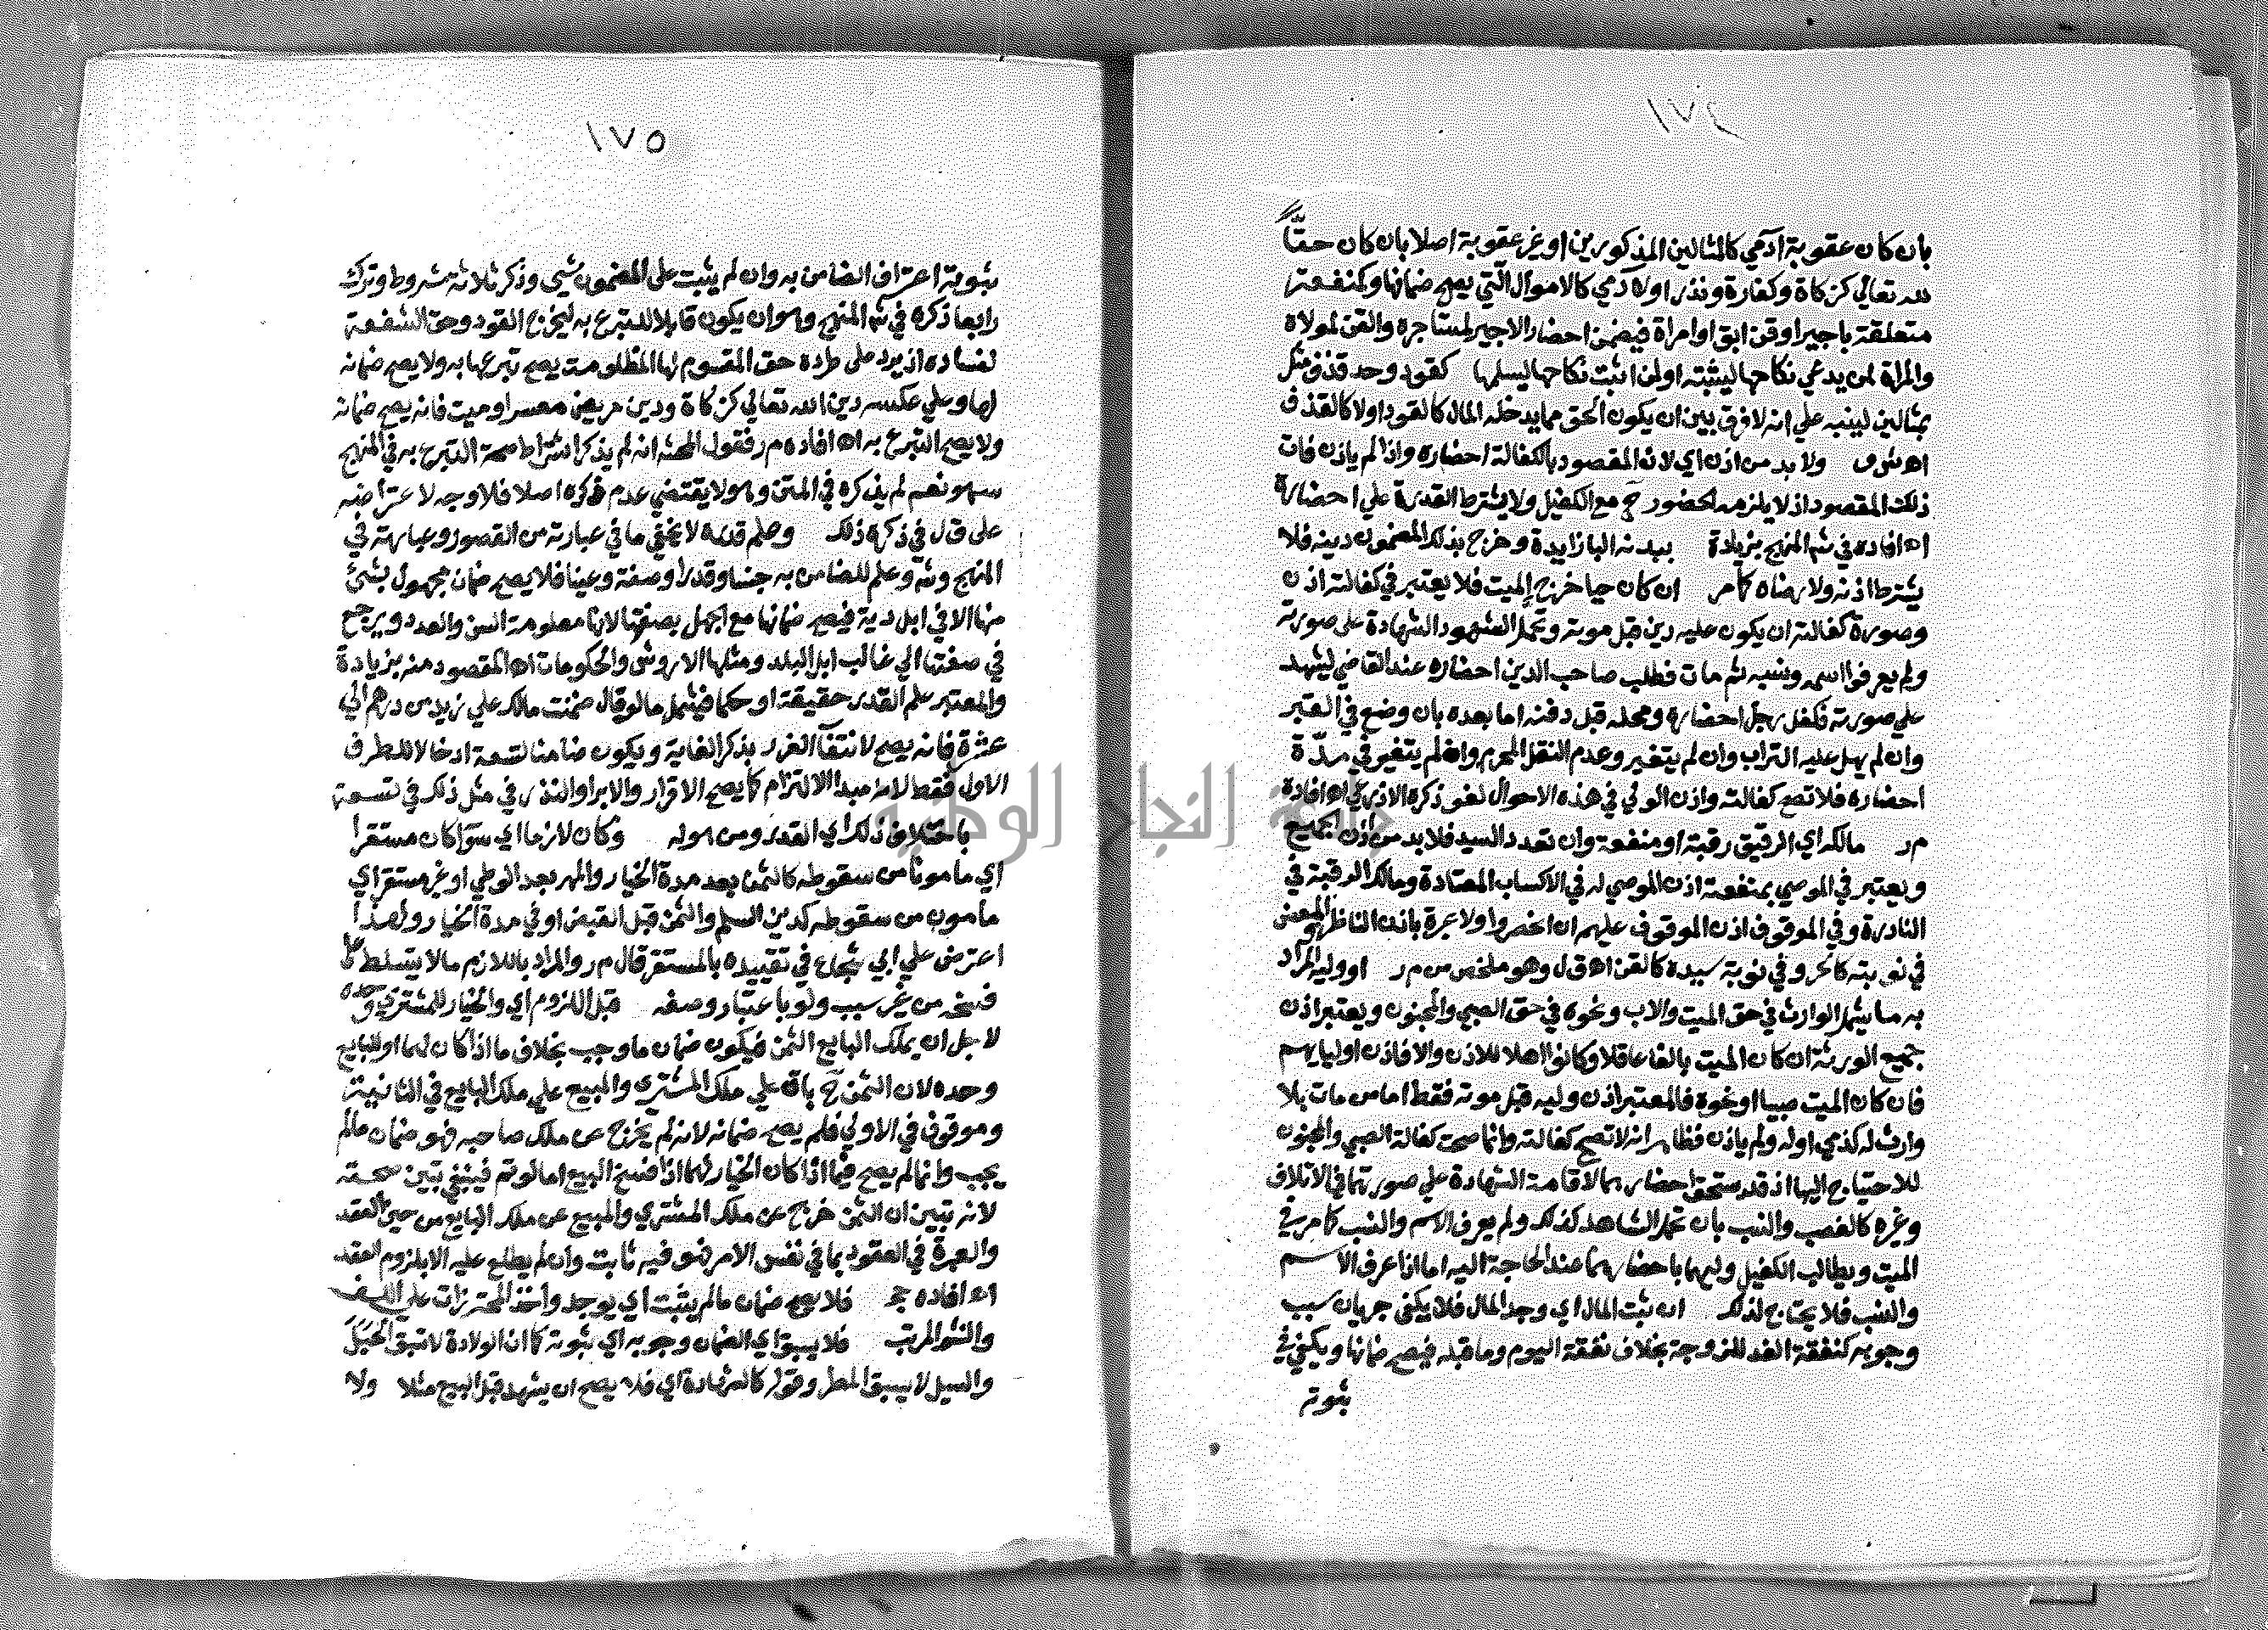 ١٧٤
بان كان عقوبة ادمي كالمثالين المذكورين او غير عقوبة اصلا بان كان حقّاً
لله تعالي كزكاة وكفارة ونذر او لادمي كالاموال التي يصح ضمانها وكمنفعة
متعلقة باجير او قن ابق او امراة فيضمن احضار الاجير لمستاجره والقن لمولاه
والمراة لمن يدعي نكاحها ليثبته او لمن اثبت نكاحها ليسلمها كقود وحد قذف مثل
بمثالين لينبه علي انه لا فرق بين ان يكون الحق مما يدخله المال كالقود اولا كالقذف
اه ش ق ولا بد من اذن اي لانه المقصود بالكفالة احضاره واذا لم ياذن فات
ذلك المقصود اذ لا يلزمه الحضور ح مع الكفيل ولا يشترط القدرة علي احضاره
اه افاده في شم المنهج بزيادة ببدنه البا زايدة وخرج بذلك المضمون دينه فلا
يشترط اذنه ولا رضاه كما مر ان كان حيا خرج الميت فلا يعتبر في كفالته اذن
وصورة كفالته ان يكون عليه دين قبل موته وتحمل الشهود الشهادة علي صورته
ولم يعرفوا اسمه ونسبه ثم مات فطلب صاحب الدين احضاره عند القاضي ليشهد
علي صورته فكفل رجل احضاره ومحله قبل دفنه اما بعده بان وضع في القبر
وان لم يهل عليه التراب وان لم يتغير وعدم النقل المحرم وان لم يتغير في مدّة
احضاره فلا تصح كفالته واذن الولي في هذه الاحوال لغو ذكره الاذرعي اه افاده
م ر مالكه اي الرقيق رقبة او منفعة وان تعدد السيد فلا بد من اذن الجميع
ويعتبر في الموصي بمنفعة اذن الموصي له في الاكساب المعتادة ومالك الرقبة في
النادرة وفي الموقوف اذن الموقوف عليهم ان انحصروا ولا عبرة باذن الناظر والمبعض
في نوبته كالحر وفي نوبة سيده كالقن اه ق ل وهو ملخص من م ر او وليه المراد
به ما يشمل الوارث في حق الميت والاب ونحوه في حق الصبي والمجنون ويعتبر اذن
جميع الورثة ان كان الميت بالغا عاقلا وكانوا اهلا للاذن والا فاذن اوليايهم
فان كان الميت صبيا او نحوه فالمعتبر اذن وليه قبل موته فقط اما من مات بلا
وارث له كذمي او له ولم ياذن فظاهر انه لا تصح كفالته وانما صحت كفالة الصبي والمجنون
للاحتياج اليها اذ قد يستحق احضارهما لاقامة الشهادة علي صورتهما في الاتلاف
وغيره كالغصب والنسب بان تحمل الشاهد كذلك ولم يعرف الاسم والنسب كما مر في
الميت ويطالب الكفيل وليهما باحضارهما عند الحاجة اليه اما اذا عرف الاسم
والنسب فلا يحتاج لذلك ان ثبت المال اي وجد المال فلا يكفي جريان سبب
وجوبه كنفقة الغد للزوجة بخلاف نفقة اليوم وما قبله فيصح ضمانها ويكفي في
ثبوته
١٧٥
ثبوته اعتراف الضامن به وان لم يثبت علي المضمون شيء وذكر ثلاثة شروط وترك
رابعا ذكره في شم المنهج وهو ان يكون قابلا للتبرع به ليخرج القود وحق الشفعة
لفساده اذ يرد علي طرده حق المقسوم لها المظلومة يصح تبرعها به ولا يصح ضمانه
لها وعلي عكسه دين الله تعالي كزكاة ودين مريض معسر او ميت فانه يصح ضمانه
ولا يصح التبرع به اه افاده م ر فقول المحشه انه لم يذكر اشتراط صحة التبرع به في المنهج
سهو نعم لم يذكره في المتن وهو لا يقتضي عدم ذكره اصلا فلا وجه لاعتراضه
علي ق ل في ذكره ذلك وعلم قدره لا يخفي ما في عبارته من القصور وعبارته في
المنهج وشم وعلم للضامن به جنسا وقدرا وصفة وعينا فلا يصح ضمان مجهول بشئ
منها الا في ابل دية فيصح ضمانها مع الجهل بصفتها لانها معلومة السن والعدد ويرجع
في صفتها الي غالب ابل البلد ومثلها الاروش والحكومات اه المقصود منه بزيادة
والمعتبر علم القدر حقيقة او حكما فيشمل ما لو قال ضمنت مالك علي زيد من درهم الي
عشرة فانه يصح لانتفآ الغرر بذكر الغاية ويكون ضامنا لتسعة ادخالا للطرف
الاول فقط لانه مبدا الالتزام كما يصح الاقرار والابرا والنذر في مثل ذلك في تسعة
باختلاف ذلك اي القدر ومن هو له وكان لازما اي سوآ كان مستقرا
اي مامونا من سقوطه كالثمن بعد مدة الخيار والمهر بعد الوطي او غير مستقر اي
مامون من سقوطه كدين السلم والثمن قبل القبض او في مدة الخيار ولهذا
اعترض علي ابي شجاع في تقييده بالمستقر قال م ر والمراد باللازم مالا يتسلط علي
فسخه من غير سبب ولو باعتبار وصفه قبل اللزوم اي والخيار للمشتري وحده
لاجل ان يملك البايع الثمن فيكون ضمان ما وجب بخلاف ما اذا كان لهما او للبايع
وحده لان الثمن ح باق علي ملك المشتري والمبيع علي ملك البايع في الثانية
وموقوف في الاولي فلم يصح ضمانه لانه لم يخرج عن ملك صاحبه فهو ضمان مالم
يجب وانما لم يصح فيما اذا كان الخيار لهما اذا فسخ البيع اما لو تم فينبغي تبين صحته
لانه تبين ان الثمن خرج عن ملك المشتري والمبيع عن ملك البايع من حين العقد
والعبرة في العقود بما في نفس الامر فهو فيه ثابت وان لم يطلع عليه الا بلزوم العقد
اه افاده حج فلا يصح ضمان مالم يثبت اي يوجد واخذ المحترزات علي اللف
والنشر المرتب فلا يسبق اي الضمان وجوبه اي ثبوته كما ان الولادة لا تسبق الحَبَل
والسيل لا يسبق المطر وقوله كالشهادة اي فلا يصح ان يشهد قبل البيع مثلا ولا
جامعة النجاح الوطنية